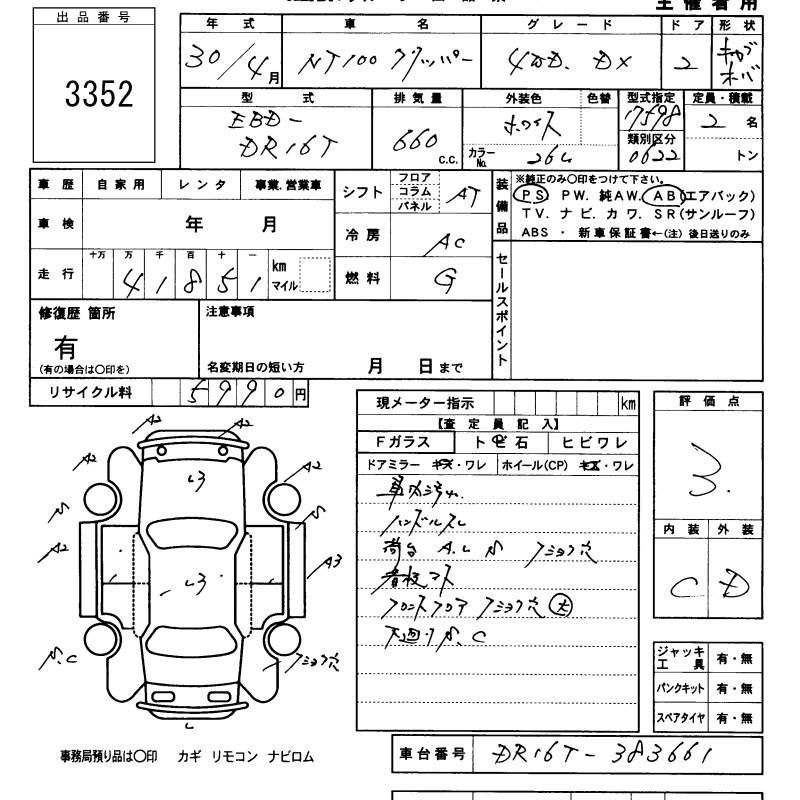 主催者用
出品番号
3352
年式 車名 グレード ドア 形状
30/4月 NT100 クリッパー 4WD. DX 2 キャブオーバ
型式 排気量 外装色 色替 型式指定 定員・積載
EBD-DR16T 660 c.c. ホワイト 17598 2 名
カラーNo. 26U 類別区分 0622 トン
車歴 自家用 レンタ 事業.営業車
シフト フロア コラム パネル AT
車検 年 月
冷房 AC
走行 十万 万 千 百 十 一 km マイル
4 1 8 5 1
燃料 G
装備品 ※純正のみ〇印をつけて下さい。
PS PW. 純AW. AB(エアバック)
TV. ナビ. カワ. SR(サンルーフ)
ABS ・ 新車保証書←(注) 後日送りのみ
セールスポイント
修復歴 箇所
有
(有の場合は〇印を)
注意事項
名変期日の短い方 月 日まで
リサイクル料 5990円
現メーター指示 km
【査定員記入】
Fガラス トビ石 ヒビワレ
ドアミラー キズ・ワレ ホイール(CP) キズ・ワレ
車内汚れ
ハンドルスレ
荷台 A.U S フショク穴
看板アト
フロントフロア フショク穴 大
下廻りS.C
評価点
3.
内装 外装
C D
ジャッキ工具 有・無
パンクキット 有・無
スペアタイヤ 有・無
A2 A2
A2 A2
S S
A2 A3
S.C フショク穴
事務局預り品は〇印 カギ リモコン ナビロム
車台番号 DR16T-383661